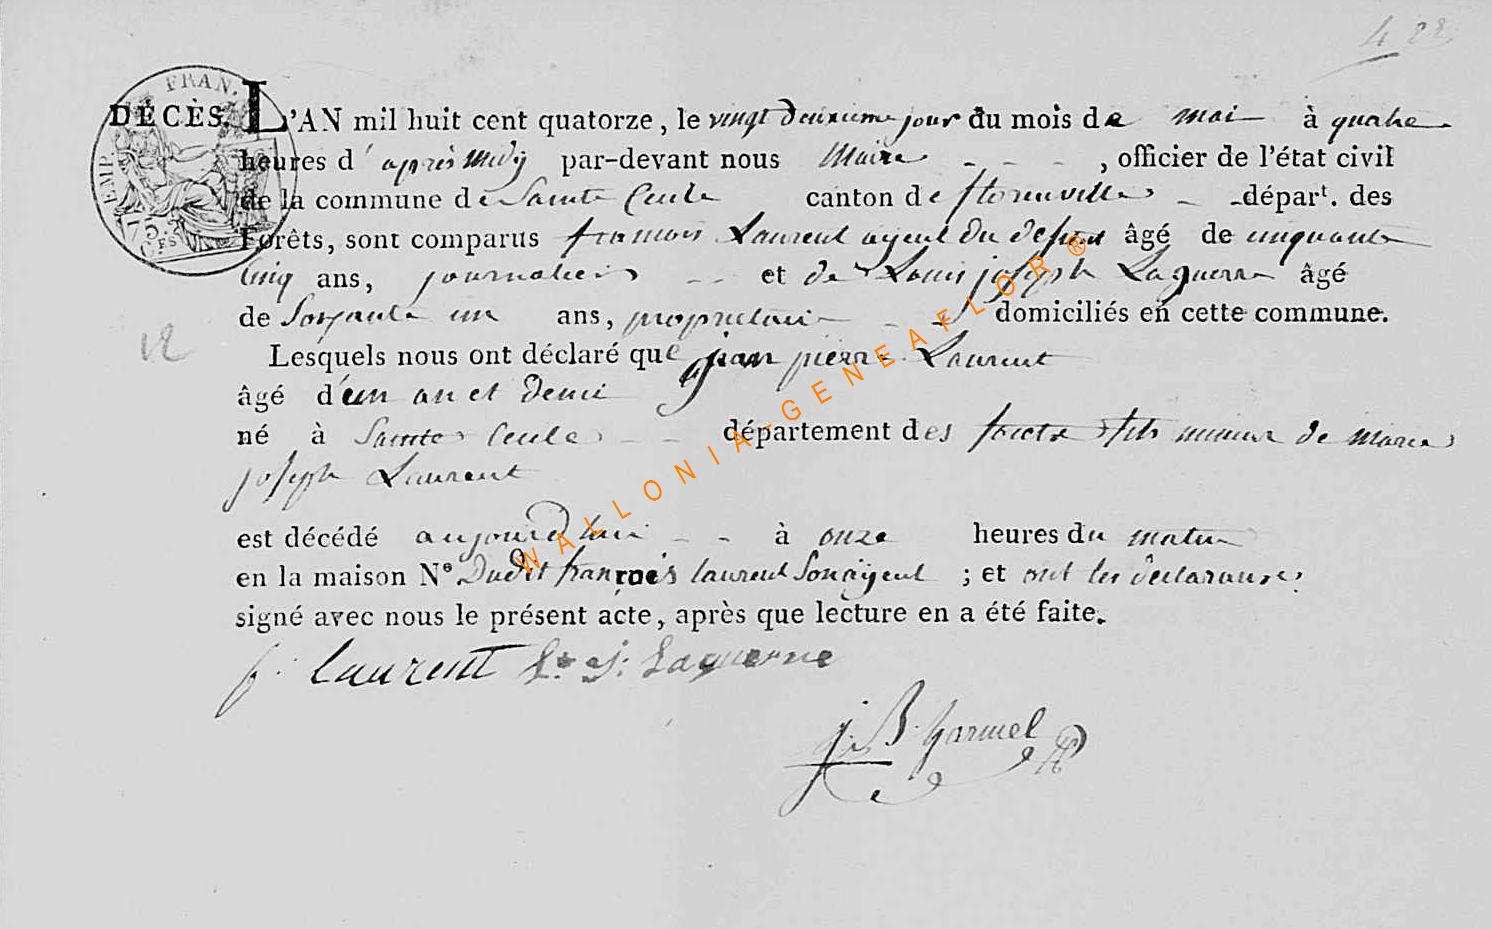 422
EMP. FRAN.
75 C.ES
DÉCÈS. L'AN mil huit cent quatorze, le vingt deuxieme jour du mois de mai à quatre
heures d'après midy par-devant nous Maire - - - , officier de l'état civil
de la commune de Sainte Cecile canton de florenville - - départ. des
Forêts, sont comparus francois Laurent ayeul du defunt âgé de cinquante
cinq ans, journalier - - et de Louis joseph Laguerre âgé
de Soixante un ans, proprietaire - - domiciliés en cette commune.
12
Lesquels nous ont déclaré que jean pierre Laurent
âgé d'un an et demi
né à Sainte Cecile - - département des forets fils mineur de marie
joseph Laurent
est décédé aujourd'hui - - à onze heures du matin
en la maison N° Dudit françois laurent Son ayeul ; et ont les declarans
signé avec nous le présent acte, après que lecture en a été faite.
f. laurent L. j. Laguerre
j. B. harmel
WALLONIA-GENEAFLOR®